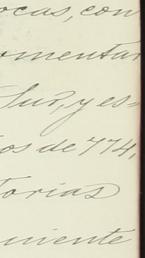 ocas, con
omentar
Sud, y es=
os de 774,
torias
mente